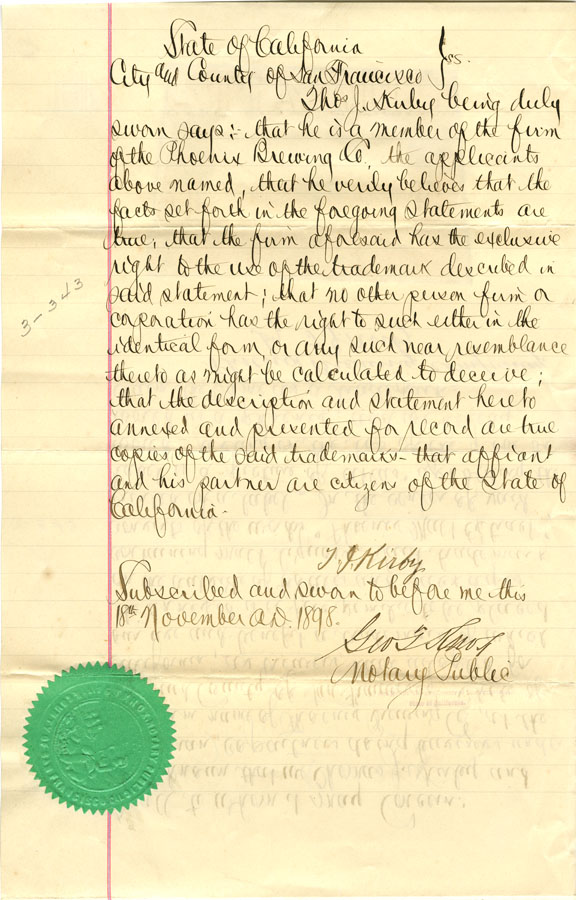 State of California
City and County of San Francisco } ss.
Thos J. Kirby being duly
sworn says;- that he is a member of the firm
of the Phoenix Brewing Co., the applicants
above named, that he verily believes that the
facts set forth in the foregoing statements are
true; that the firm aforesaid has the exclusive
right to the use of the trademark described in
said statement; that no other person firm or
corporation has the right to such either in the
identical form, or any such near resemblance
thereto as might be calculated to deceive;
that the description and statement hereto
annexed and presented for record are true
copies of the said trademarks - that affiant
and his partner are citizens of the State of
California.
3-343
T J Kirby
Subscribed and sworn to before me this
18th November A.D. 1898.
Geo T Knox
Notary Public